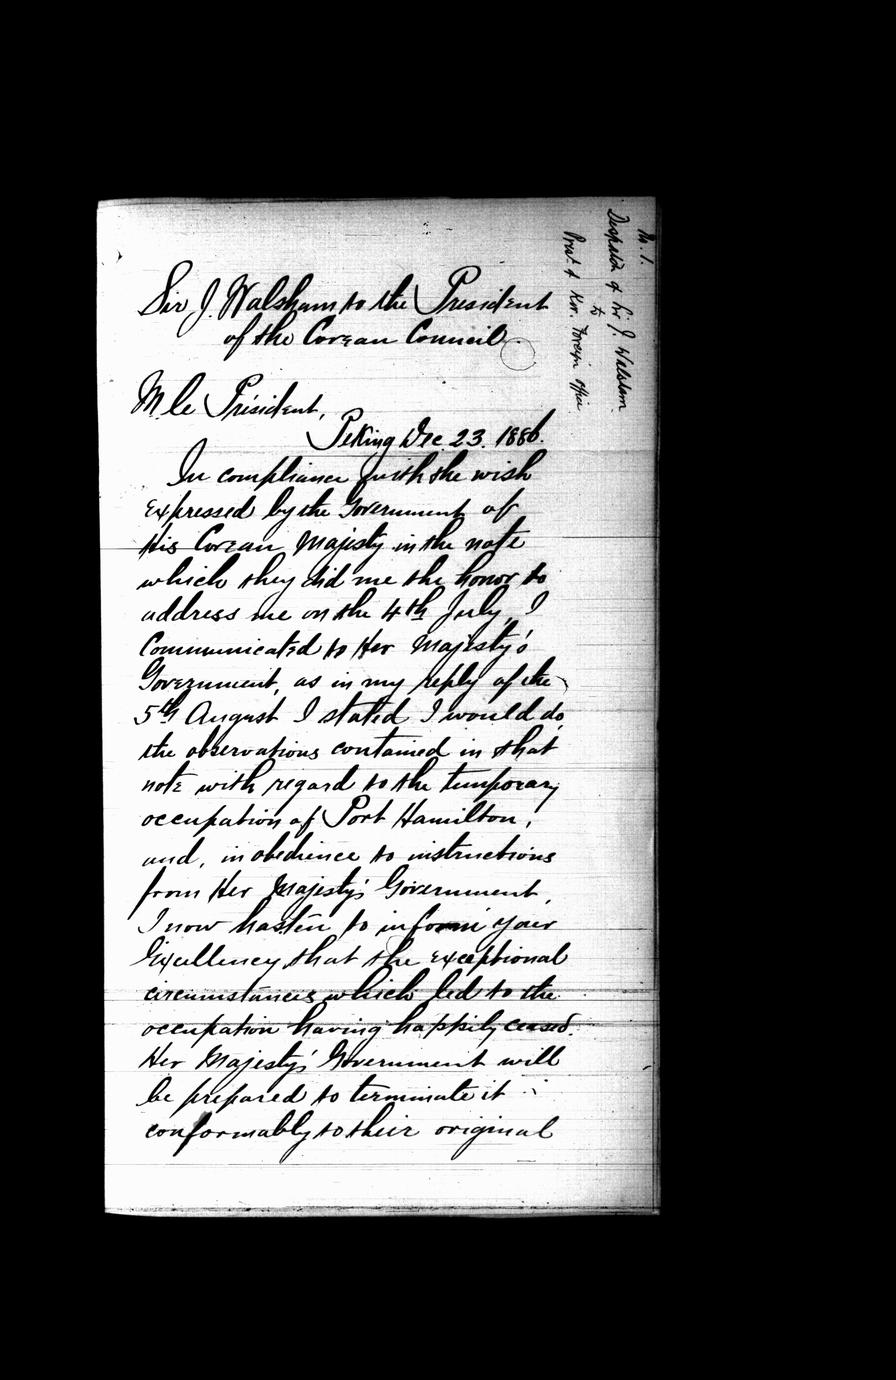 No. 1.
Despatch of Sir J. Walsham
to
Prest of Kor. Foreign Office
Sir J. Walsham to the President
of the Corean Council.
M. le Président,
Peking Dec. 23. 1886.
In compliance with the wish
expressed by the Government of
His Corean Majesty in the note
which they did me the honor to
address me on the 4th July, I
communicated to Her Majesty's
Government, as in my reply of the
5th August I stated I would do,
the observations contained in that
note with regard to the temporary
occupation of Port Hamilton,
and, in obedience to instructions
from Her Majesty's Government,
I now hasten to inform your
Excellency that the exceptional
circumstances which led to the
occupation having happily ceased.
Her Majesty's Government will
be prepared to terminate it
conformably to their original